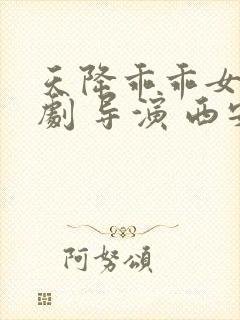 天降乖乖女
劇 导演 西安
阿努頌